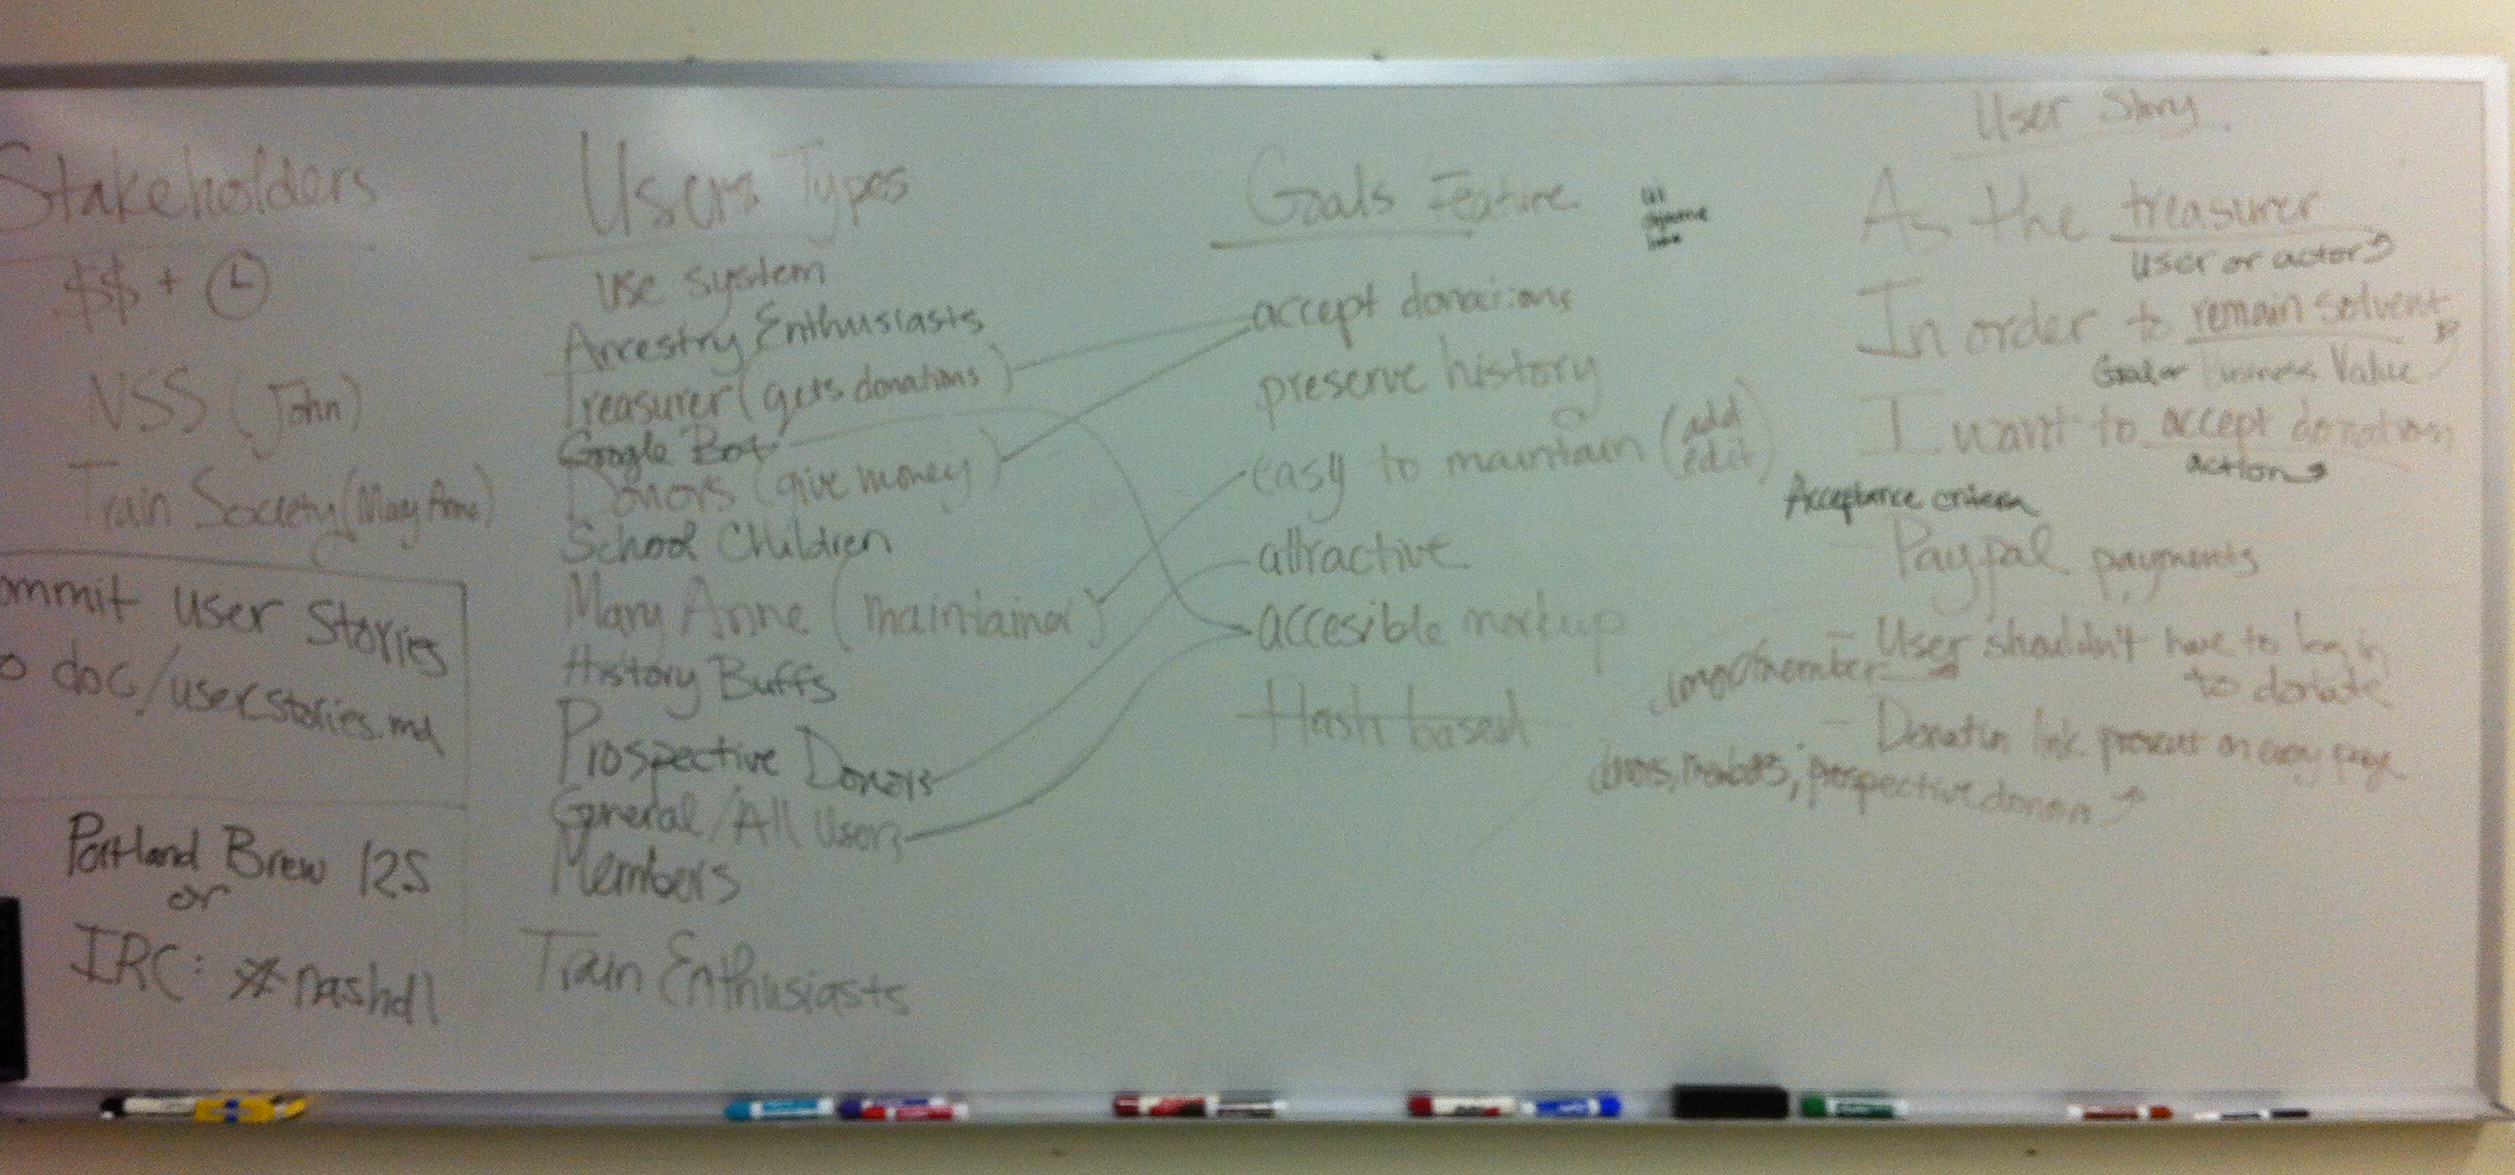 Stakeholders
$$ +
NSS (John)
Train Society (Mary Anne)
ommit user Stories
o doc/userstories.md
Portland Brew 12S
or
IRC: #nashdl
Users Types
use system
Ancestry Enthusiasts
Treasurer (gets donations)
Google Bot
Donors (give money)
School Children
Mary Anne (maintainer)
History Buffs
Prospective Donors
General/All Users
Members
Train Enthusiasts
Goals Feature
accept donations
preserve history
easy to maintain (add
edit)
attractive
accesible markup
Flash based
User Story
As the treasurer
user or actor
In order to remain solvent
Goal or Business Value
I want to accept donation
action
Acceptance criteria
- Paypal payments
- User shouldn't have to log in
to donate
donor/member
- Donation link present on every page
donors, members, prospective donors